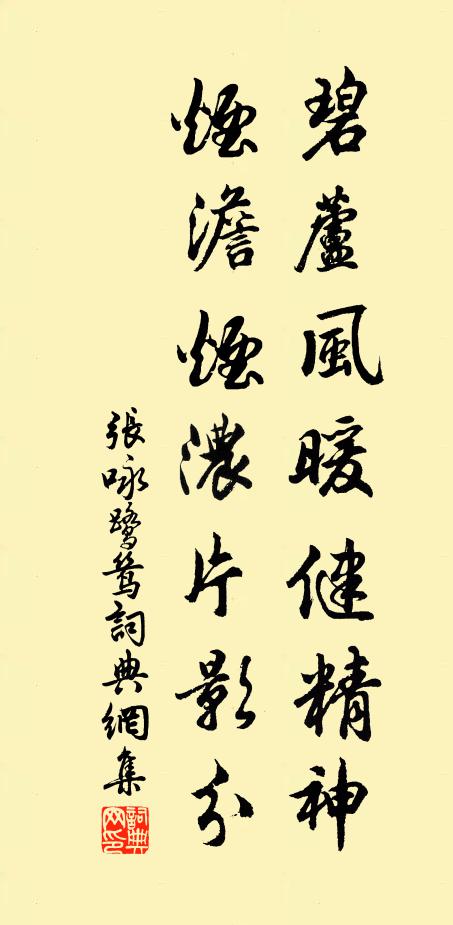 碧蘆風暖健精神
煙澹煙濃片影分
張咏鷺鷥詞典網集
詞典網印